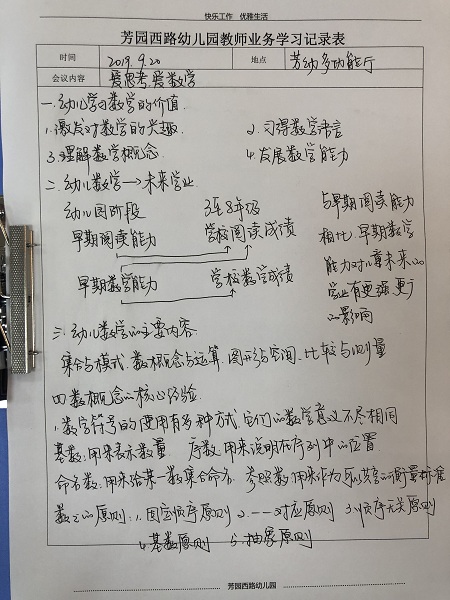 快乐工作 优雅生活
芳园西路幼儿园教师业务学习记录表
时间 2019.9.20 地点 芳纳多功能厅
会议内容 爱思考,爱数学
一.幼儿学习数学的价值
1.激发对数学的兴趣 2.习得数学语言
3.理解数学概念 4.发展数学能力
二.幼儿数学→未来学业
幼儿园阶段 3至8年级
早期阅读能力 学校阅读成绩
早期数学能力 学校数学成绩
与早期阅读能力
相比,早期数学
能力对儿童未来的
学业有更强更广
的影响
三.幼儿数学的主要内容
集合与模式.数概念与运算.图形与空间.比较与测量
四 数概念的核心经验
1.数字符号的使用有多种方式,它们的数学意义不尽相同
基数:用来表示数量. 序数:用来说明在序列中的位置
命名数:用来给某一数集合命名. 参照数:用来作为
数数的原则:1.固定顺序原则 2.一一对应原则 3.顺序无关原则
4.基数原则 5.抽象原则
芳园西路幼儿园